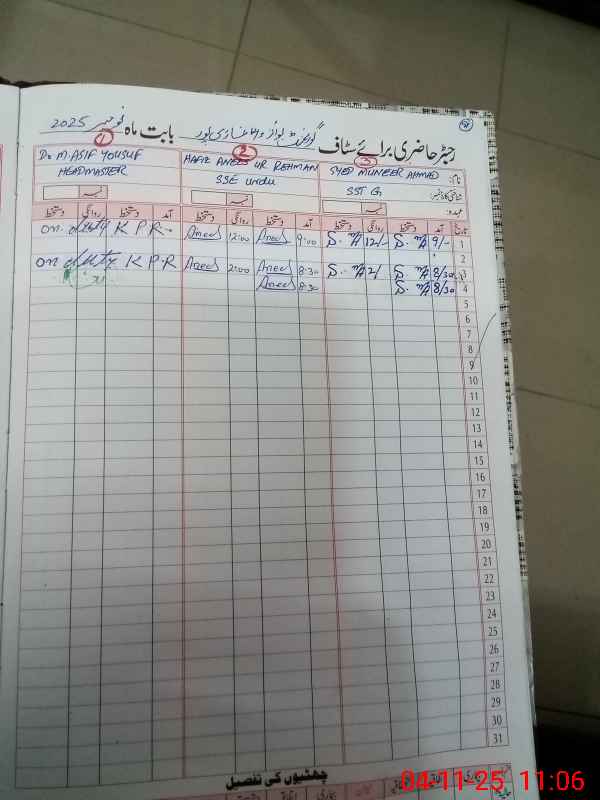 رجسٹر حاضری برائے سٹاف گورنمنٹ بوائز بابت ماہ نومبر 2025
① ② ③
نام: SYED MUNEER AHMED HAFIZ ANEES UR REHMAN Dr M ASIF YOUSUF
شناختی کارڈ نمبر: SST G SSE urdu HEADMASTER
عہدہ: نمبر نمبر نمبر
تاریخ آمد دستخط روانگی دستخط آمد دستخط روانگی دستخط آمد دستخط روانگی دستخط
1 9/- S. MA 12/- S. MA 9:00 Anees 12:00 Anees on duty K P R
2
3 8/30 S. MA 2/ S. MA 8:30 Anees 2:00 Anees on duty K P R
4 8/30 S. MA 8:30 Anees
5
6
7
8
9
10
11
12
13
14
15
16
17
18
19
20
21
22
23
24
25
26
27
28
29
30
31
چھٹیوں کی تفصیل
04-11-25 11:06